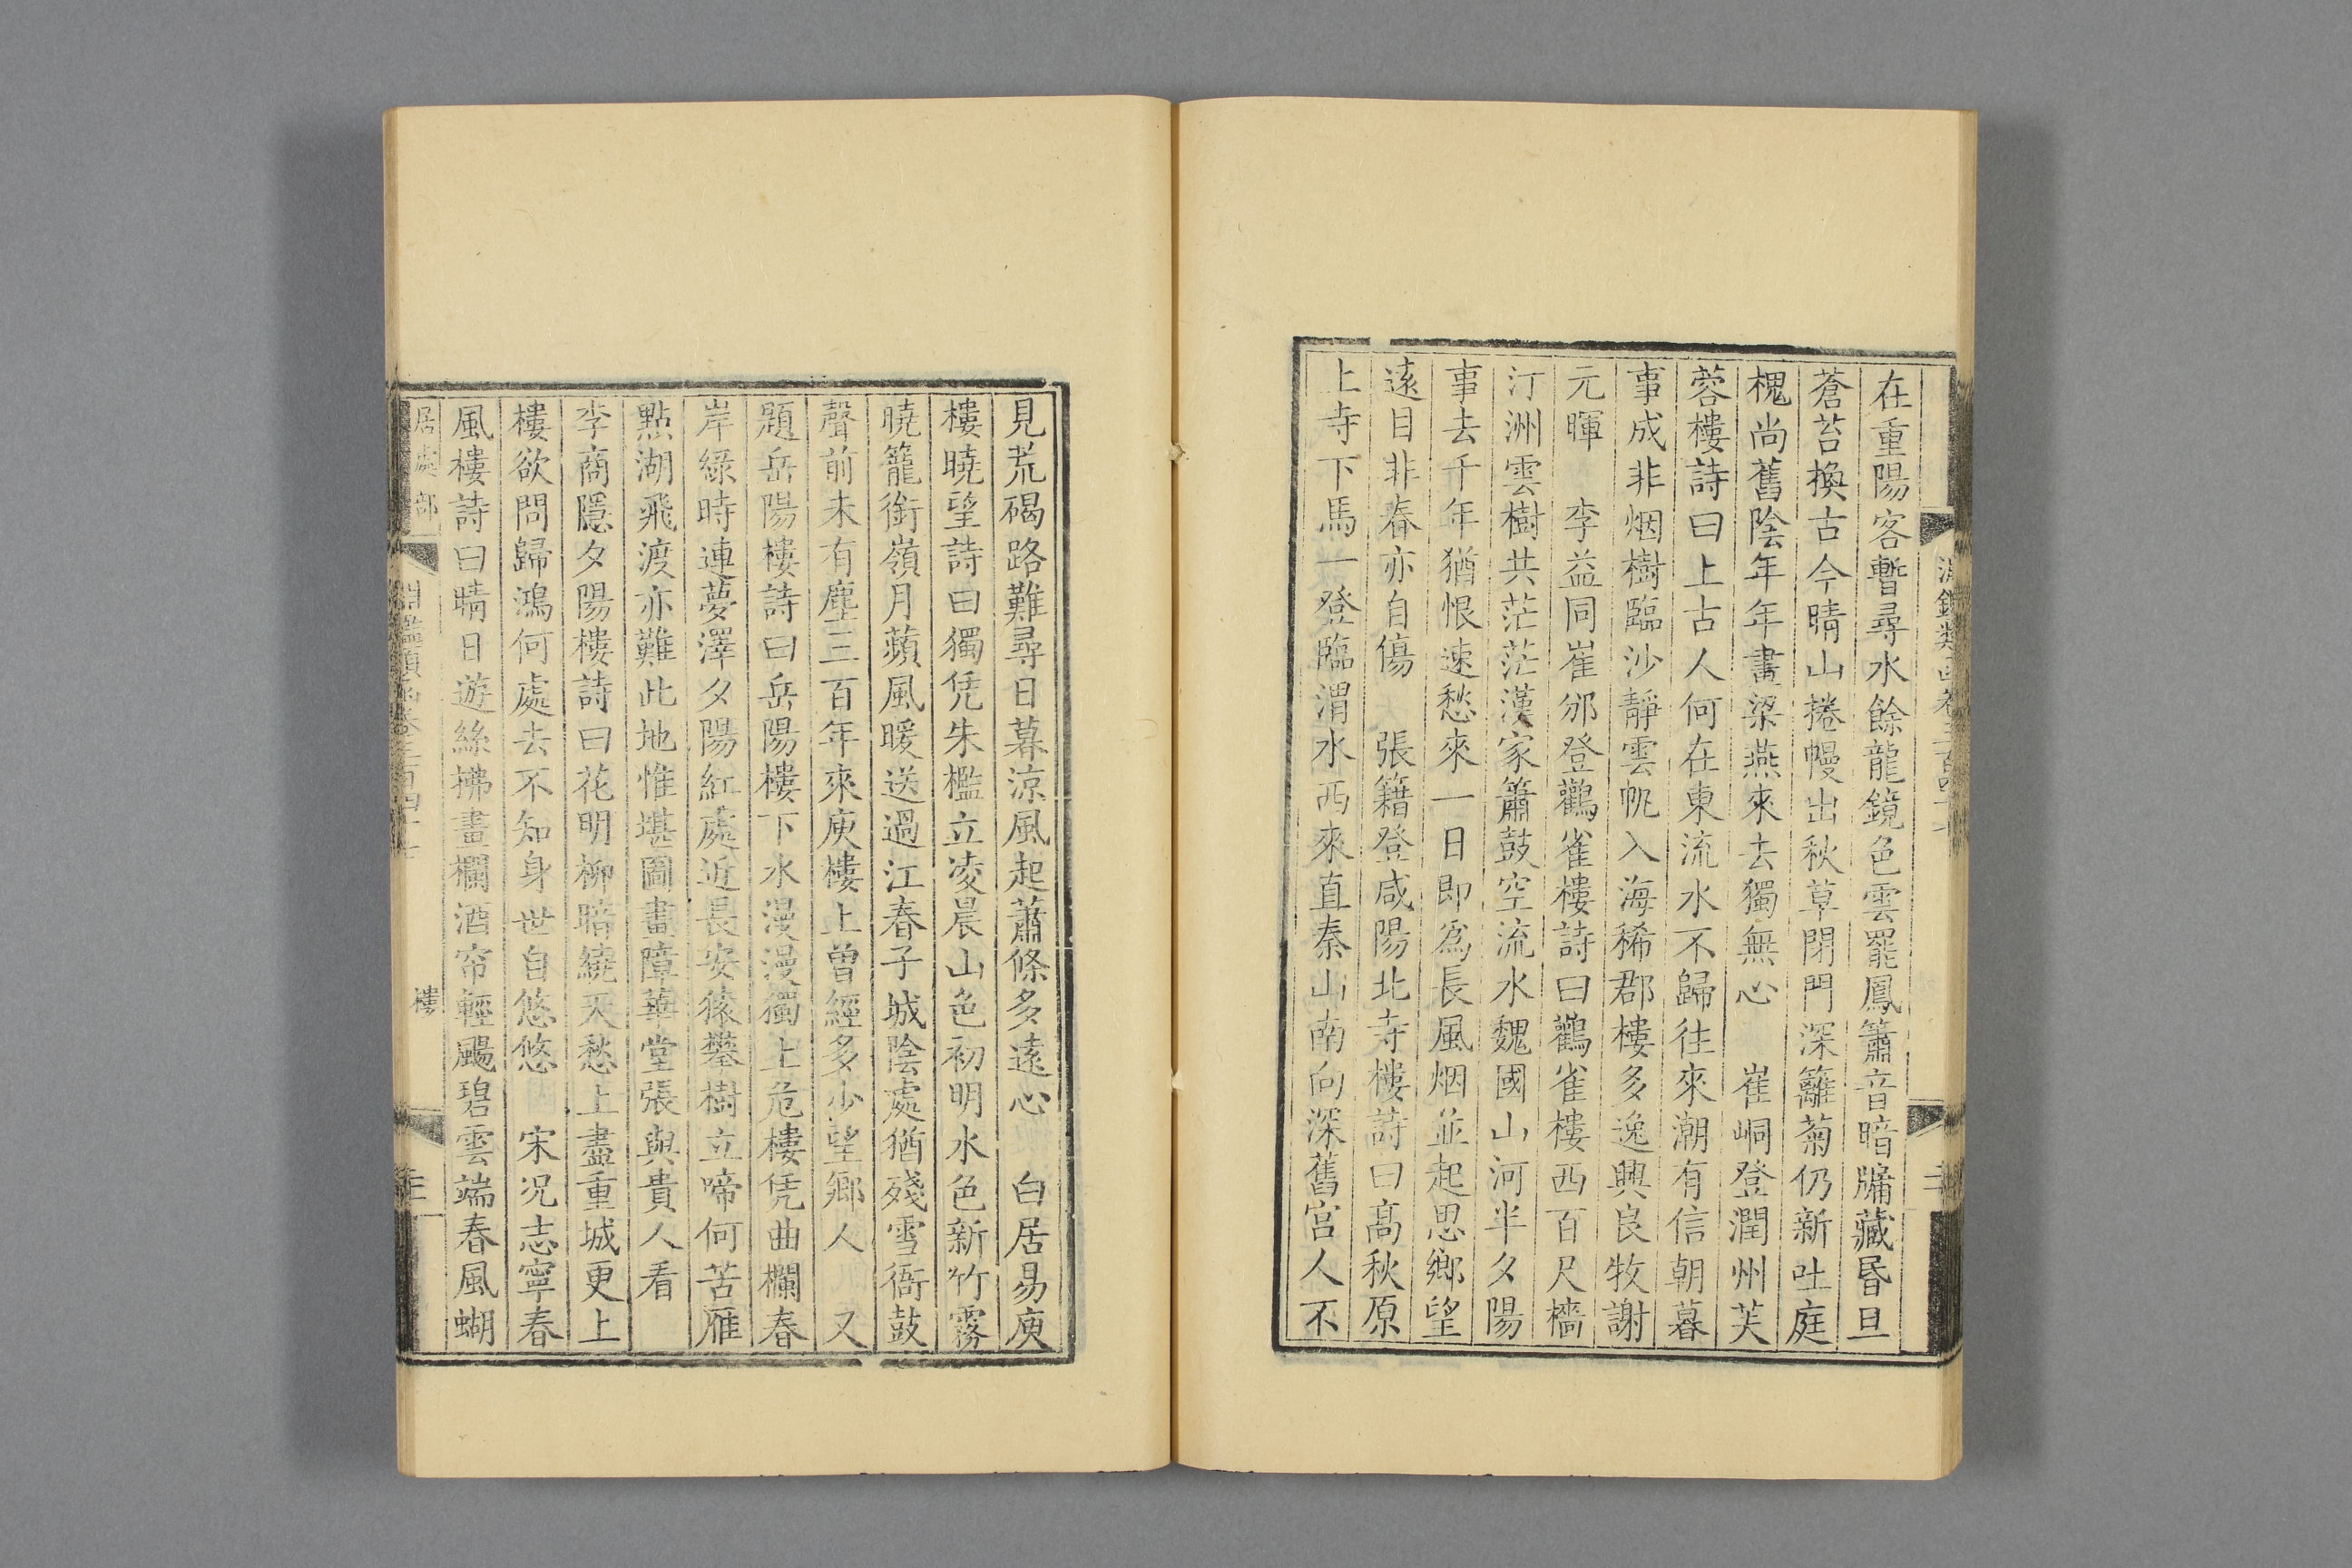 在重陽客暫尋水餘龍鏡色雲罷鳳簫音暗牖藏昏旦
蒼苔換古今晴山捲幔出秋草閉門深籬菊仍新吐庭
槐尚舊陰年年畫梁燕來去獨無心　崔峒登潤州芙
蓉樓詩曰上古人何在東流水不歸往來潮有信朝暮
事成非烟樹臨沙靜雲帆入海稀郡樓多逸興良牧謝
元暉　李益同崔邠登鸛雀樓詩曰鸛雀樓西百尺檣
汀洲雲樹共茫茫漢家簫鼓空流水魏國山河半夕陽
事去千年猶恨速愁來一日即為長風烟並起思鄉望
遠目非春亦自傷　張籍登咸陽北寺樓詩曰高秋原
上寺下馬一登臨渭水西來直秦山南向深舊宮人不
見荒碣路難尋日暮涼風起蕭條多遠心　白居易庾
樓曉望詩曰獨凭朱檻立凌晨山色初明水色新竹霧
曉籠銜嶺月蘋風暖送過江春子城陰處猶殘雪衙鼓
聲前未有塵三百年來庾樓上曾經多少望鄉人　又
題岳陽樓詩曰岳陽樓下水漫漫獨上危樓凭曲欄春
岸綠時連夢澤夕陽紅處近長安猿攀樹立啼何苦雁
點湖飛渡亦難此地惟堪圖畫障華堂張與貴人看
李商隱夕陽樓詩曰花明柳暗繞天愁上盡重城更上
樓欲問歸鴻何處去不知身世自悠悠　宋況志寧春
風樓詩曰晴日遊絲拂畫欄酒帘輕颺碧雲端春風蝴
居處部　淵鑑類函卷三百四十七　樓　三